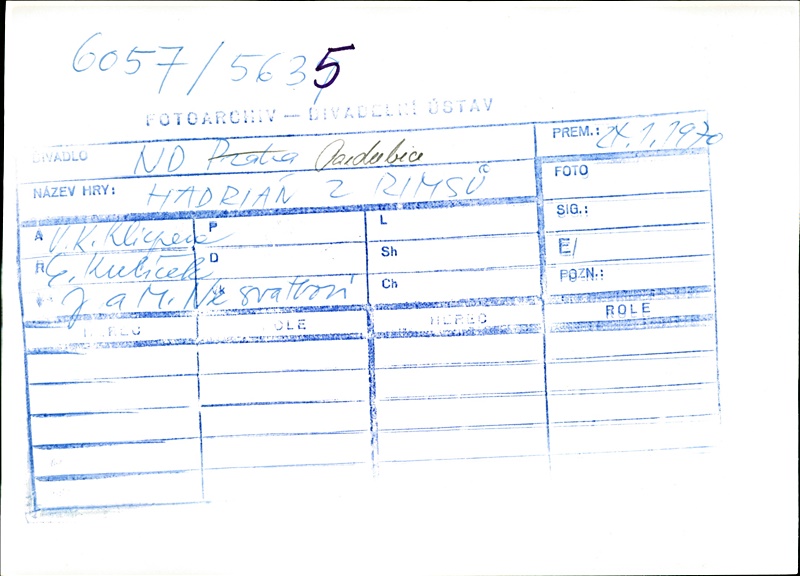 6057/5635
FOTOARCHIV — DIVADELNÍ ÚSTAV
DIVADLO ND Praha Pardubice PREM.: 24.1.1970
NÁZEV HRY: HADRIÁN Z ŘIMSŮ FOTO
A V. K. Klicpera P L SIG.:
R D Sh E/
J a M. Nesvatbovi Vk Ch POZN.:
HEREC ROLE HEREC ROLE